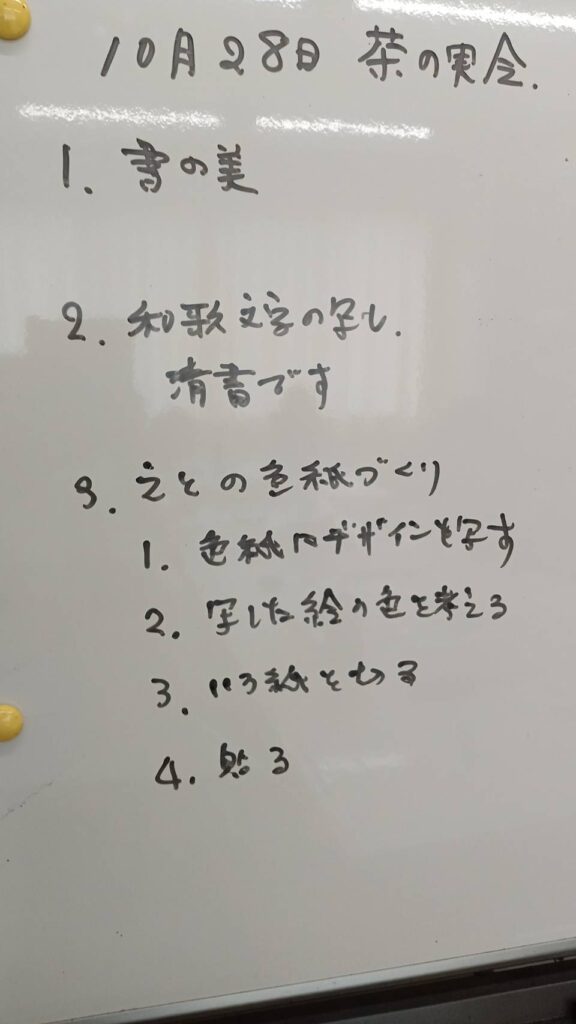 10月28日 茶の実会.
1. 書の美
2. 和歌文字の写し.
清書です
3. えとの色紙づくり
1. 色紙にデザインを写す
2. 写した絵の色を考える
3. いろ紙を切る
4. 貼る